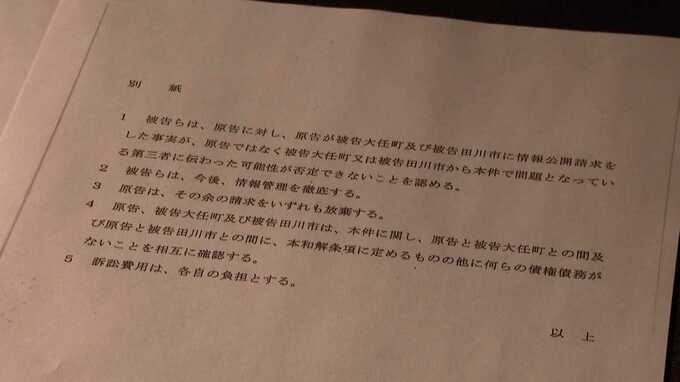 別 紙
1 被告らは、原告に対し、原告が被告大任町及び被告田川市に情報公開請求を
した事実が、原告ではなく被告大任町又は被告田川市から本件で問題となってい
る第三者に伝わった可能性が否定できないことを認める。
2 被告らは、今後、情報管理を徹底する。
3 原告は、その余の請求をいずれも放棄する。
4 原告、被告大任町及び被告田川市は、本件に関し、原告と被告大任町との間及
び原告と被告田川市との間に、本和解条項に定めるものの他に何らの債権債務が
ないことを相互に確認する。
5 訴訟費用は、各自の負担とする。
以 上